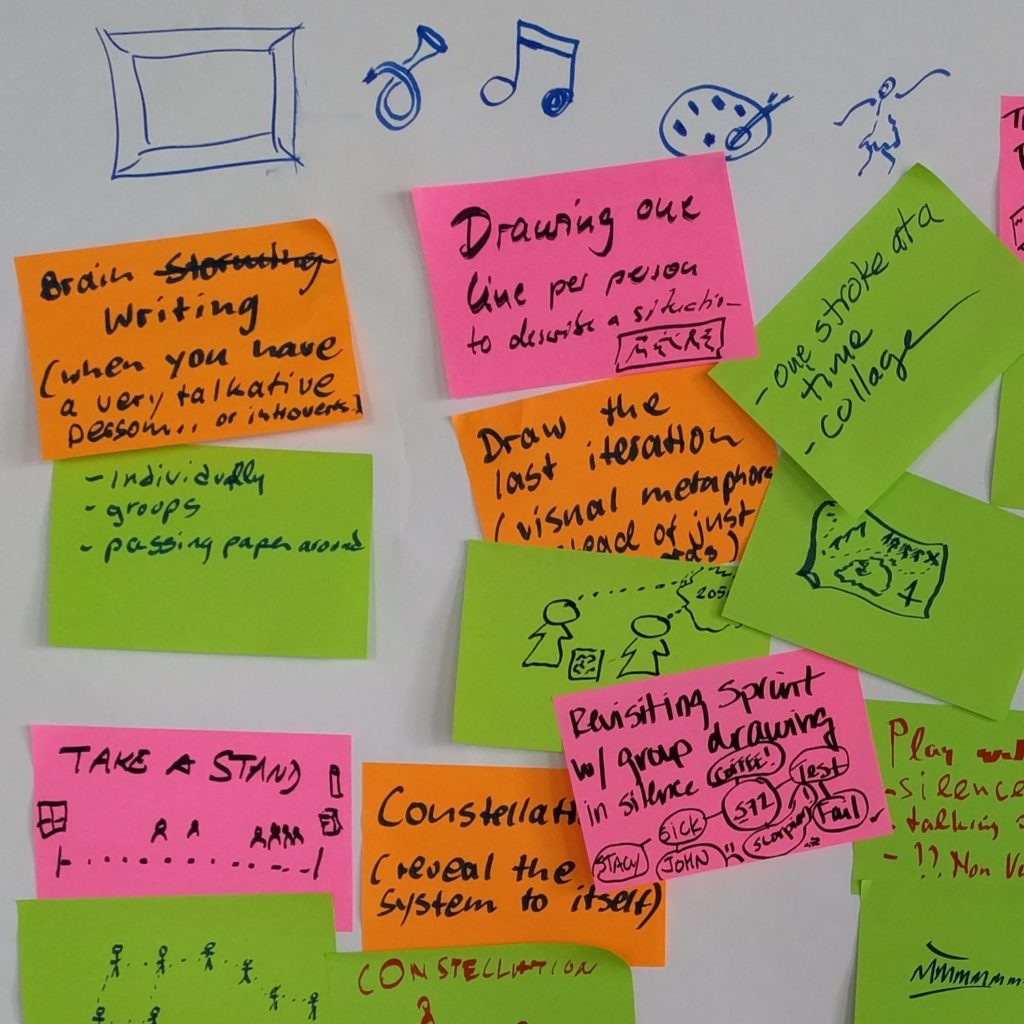 Brain Storming
Writing
(when you have
a very talkative
person.. or introverts)
- Individually
- groups
- passing paper around
Drawing one
line per person
to describe a situation
- one stroke at a
time
- collage
Draw the
last iteration
(visual metaphors
ead of just
ds)
205
Revisiting Sprint
w/ group drawing
in silence
COFFEE!
Test
572
SICK
Fail
STACY
JOHN
TAKE A STAND
Constellati
(reveal the
system to itself)
CONSTELLATION
Play
- silence
- talking
- !! Non Ve